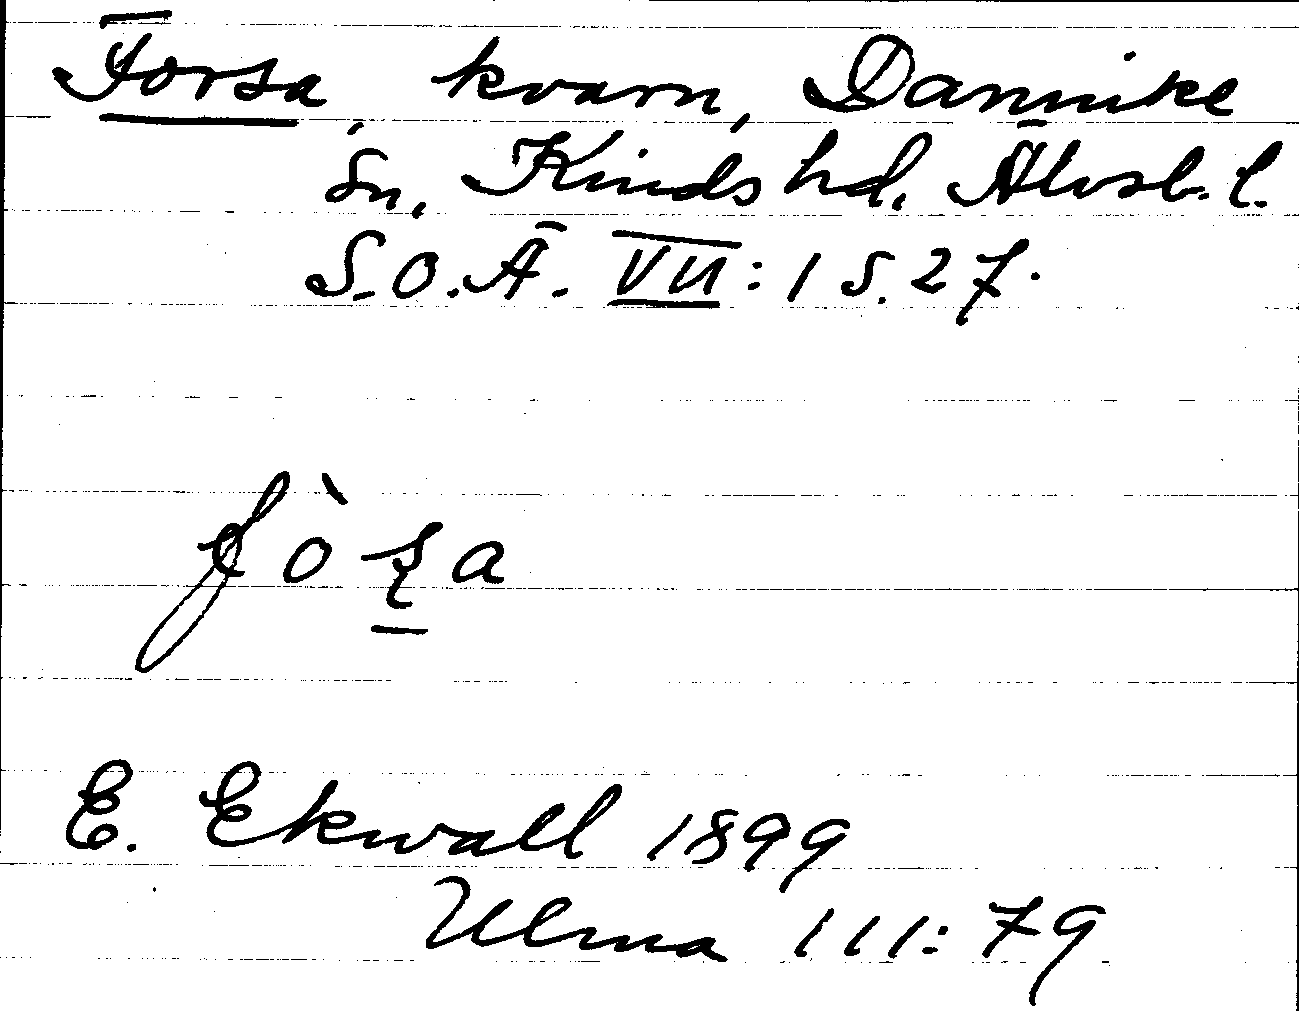 Forsa, kvarn, Dannike
sn, Kinds hd. Älvsb. l.
S.O.Ä. VII: 1 s. 27.
E. Ekwall 1899
Ulma 111:79